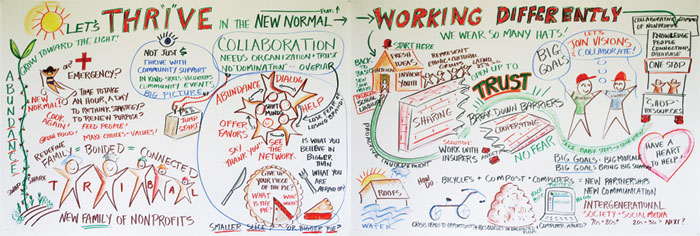 LET'S THRIVE IN THE NEW NORMAL
From
WORKING DIFFERENTLY
WE WEAR SO MANY HATS!
GROW TOWARD THE LIGHT!
ABUNDANCE
OR
EMERGENCY?
NEW NORMAL?
TIME TO TAKE
AN HOUR, A DAY
TO RETHINK STRATEGY
TO RENEW PURPOSE
LOOK
AGAIN!
GROW FOOD!
FEED PEOPLE!
MAKE CHOICES = VALUES!
REDEFINE
FAMILY = BONDED = CONNECTED
SHARE
TRIBAL
NEW FAMILY OF NONPROFITS
NOT JUST $
THRIVE WITH
COMMUNITY SUPPORT
IN-KIND-SKILLS-VOLUNTEERS
COMMUNITY EVENTS
BIG PICTURE
JUMP
START
COLLABORATION
NEEDS ORGANIZATION + TRUST
NO DOMINATION - OVER
ABUNDANCE
DIALOG
SHIFT
MINDS
HELP
OFFER
FAVORS
SAY
THANK YOU
SEE
THE
NETWORK
LOSE FEAR OF
LOSING
IS WHAT YOU
BELIEVE IN
BIGGER
THAN
WHAT YOU
ARE
AFRAID OF?
GIVE UP
YOUR PIECE OF
THE PIE
WHAT
IS THE
PIE?
SMALLER SLICE OR BIGGER PIE?
START HERE
FRESH
IDEAS
INVOLVE
YOUTH
REPRESENT
ETHNIC + CULTURAL
GROUPS
LATINO
OPEN UP TO
TRUST
SHARING
BREAK DOWN BARRIERS
COOPERATING
NO FEAR
WORK WITH
INSURERS
INVOLVEMENT
BIG
GOALS
LET'S
JOIN VISIONS
& COLLABORATE!
BIG GOALS = BIG MORALE
BIG GOALS BRING BIG
COLLABORATIVE
OF NONPROFITS
KNOWLEDGE
PEOPLE
CONNECTIONS
ONE STOP
SHOP
RESOURCES
HAVE A
HEART
TO HELP!
ROOFS
WATER
HOW
DO
BICYCLES + COMPOST + COMPUTERS = NEW PARTNERSHIPS
NEW COMMUNICATION
INTERGENERATIONAL
SOCIETY + SOCIAL MEDIA